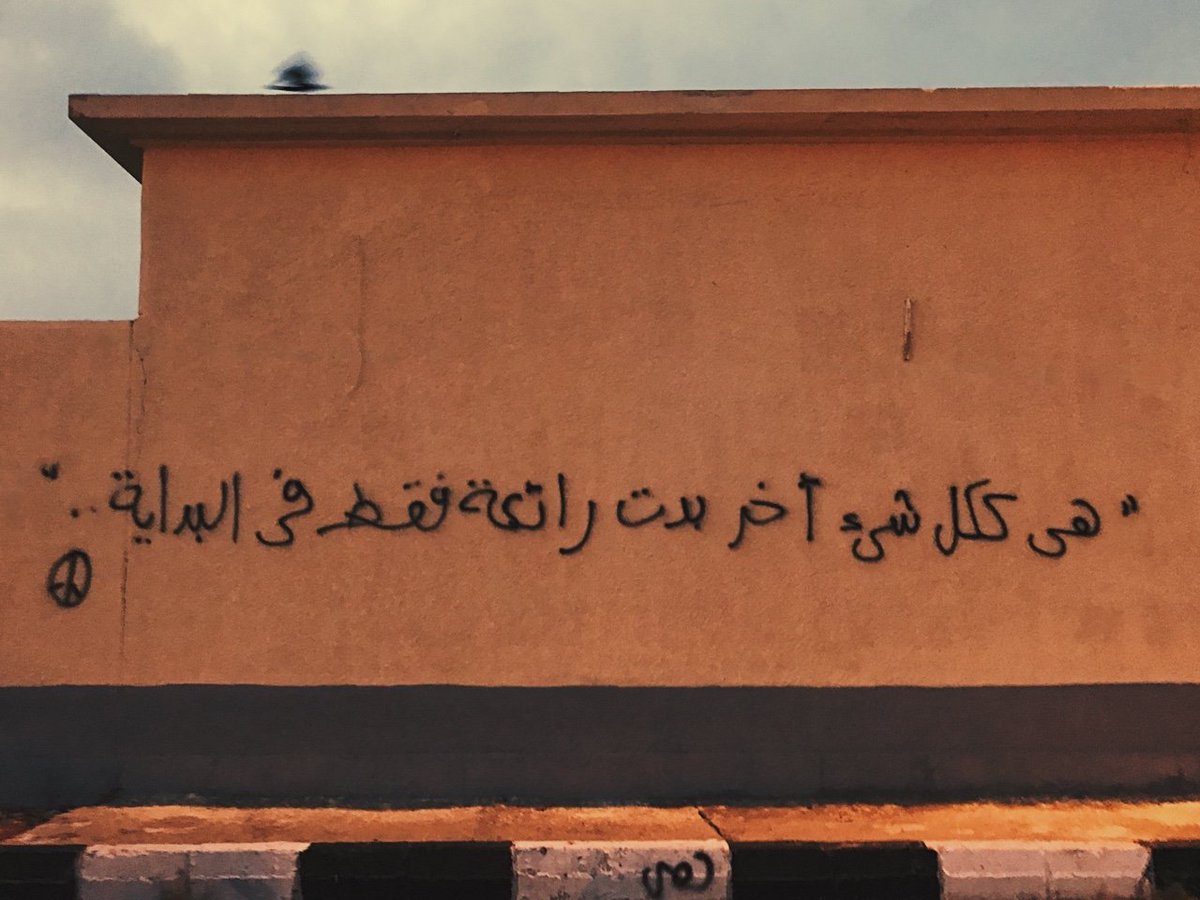 "هي ككل شيء آخر بدت رائعة فقط في البداية .."